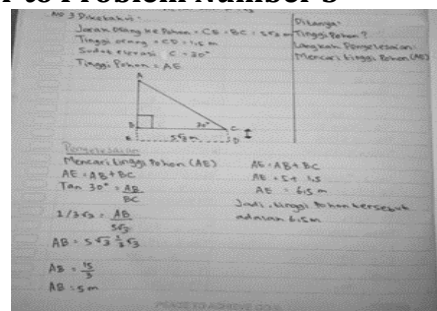 r to Problem Number 3
No 3 Diketahui :
Jarak orang ke Pohon = CB = BC = 5√3 m
Tinggi orang = CD = 1,5 m
Sudut elevasi C = 30°
Tinggi Pohon = AE
Ditanya:
Tinggi Pohon ?
Langkah Penyelesaian:
Mencari tinggi Pohon (AE)
A
B
30°
C
E
5√3 m
D
Penyelesaian
Mencari tinggi Pohon (AE)
AE = AB + BC
Tan 30° = AB
BC
1/3√3 = AB
5√3
AB = 5√3 1/3 √3
AB = 15
3
AB = 5 m
AE = AB + BC
AE = 5 + 1,5
AE = 6,5 m
Jadi, tinggi Pohon tersebut
adalah 6,5m